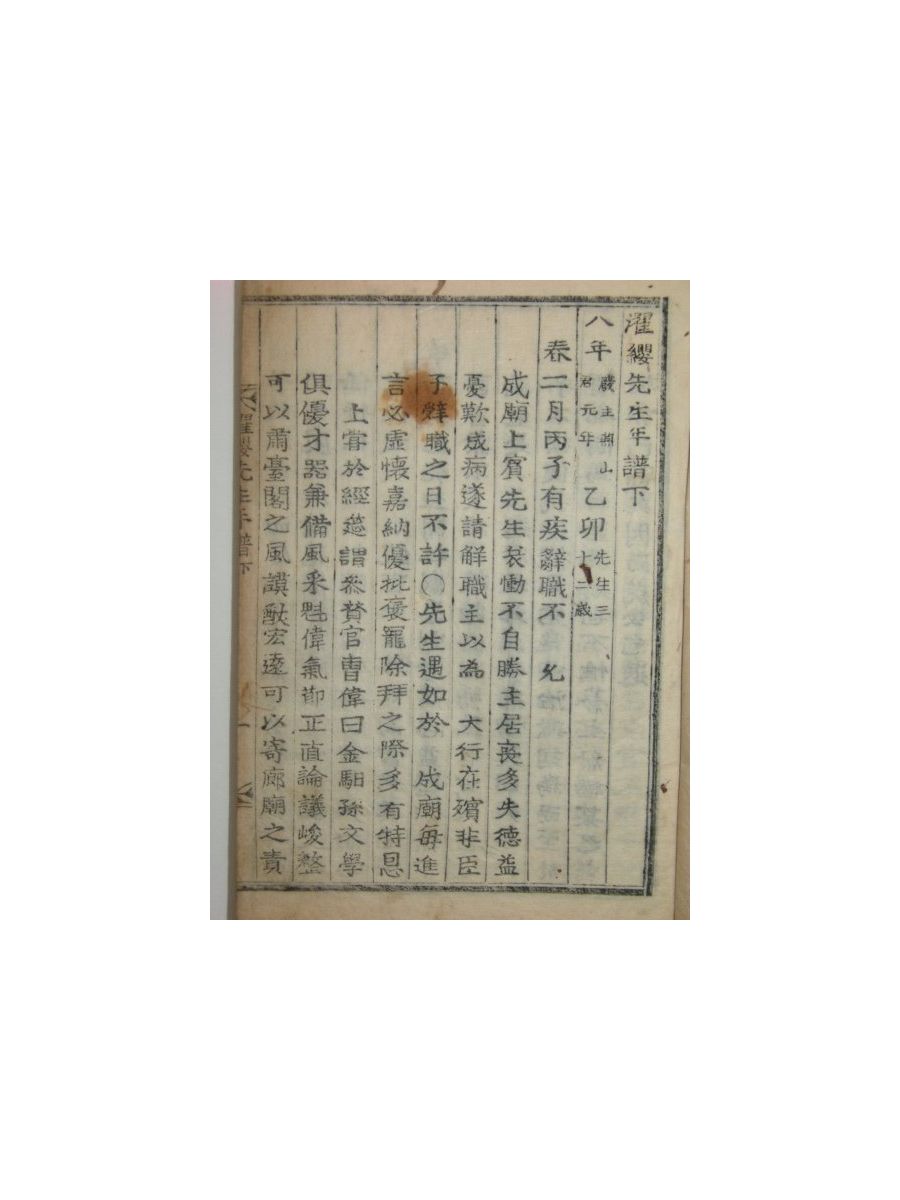 濯纓先生年譜下
八年 廢主燕山君元年 乙卯 先生三十二歲
春二月丙子有疾辭職不 允
成廟上賓先生哀慟不自勝主居喪多失德益
憂歎成病遂請解職主以為 大行在殯非臣
子辭職之日不許○先生遇知於 成廟每進
言必虛懷嘉納優批褒寵除拜之際多有特恩
上嘗於經筵謂參贊官曺偉曰金馹孫文學
俱優才器兼備風采魁偉氣節正直論議峻整
可以肅臺閣之風謨猷宏遠可以寄廊廟之責
濯纓先生年譜下 一